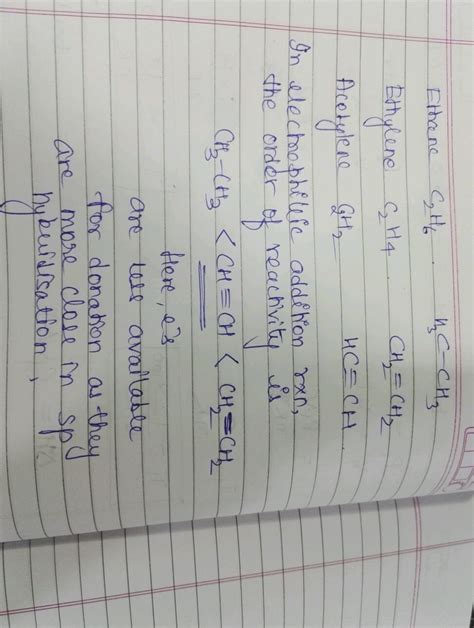 Ethane C2H6. H3C-CH3
Ethylene C2H4. CH2=CH2
Acetylene C2H2 HC≡CH
In electrophilic addition rxn,
the order of reactivity is
CH3-CH3 < CH≡CH < CH2=CH2
Here, e's
are less available
for donation as they
are more close in sp
hybridisation,